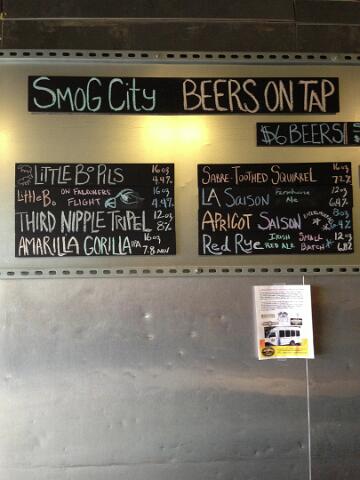 SMOG CITY BEERS ON TAP
$6 BEERS
LITTLE BO PILS 16oz 4.4%
LITTLE Bo. ON FALCONERS FLIGHT 16oz 4.4%
THIRD NIPPLE TRIPEL 12oz 8%
AMARILLA GORILLA IPA 16oz 7.8 ABV
SABRE-TOOTHED SQUIRREL 16oz 7.2%
LA SAISON Farmhouse Ale 12oz 6.4%
APRICOT SAISON 8oz 6.4%
Red Rye IRISH RED ALE SMALL BATCH 12oz